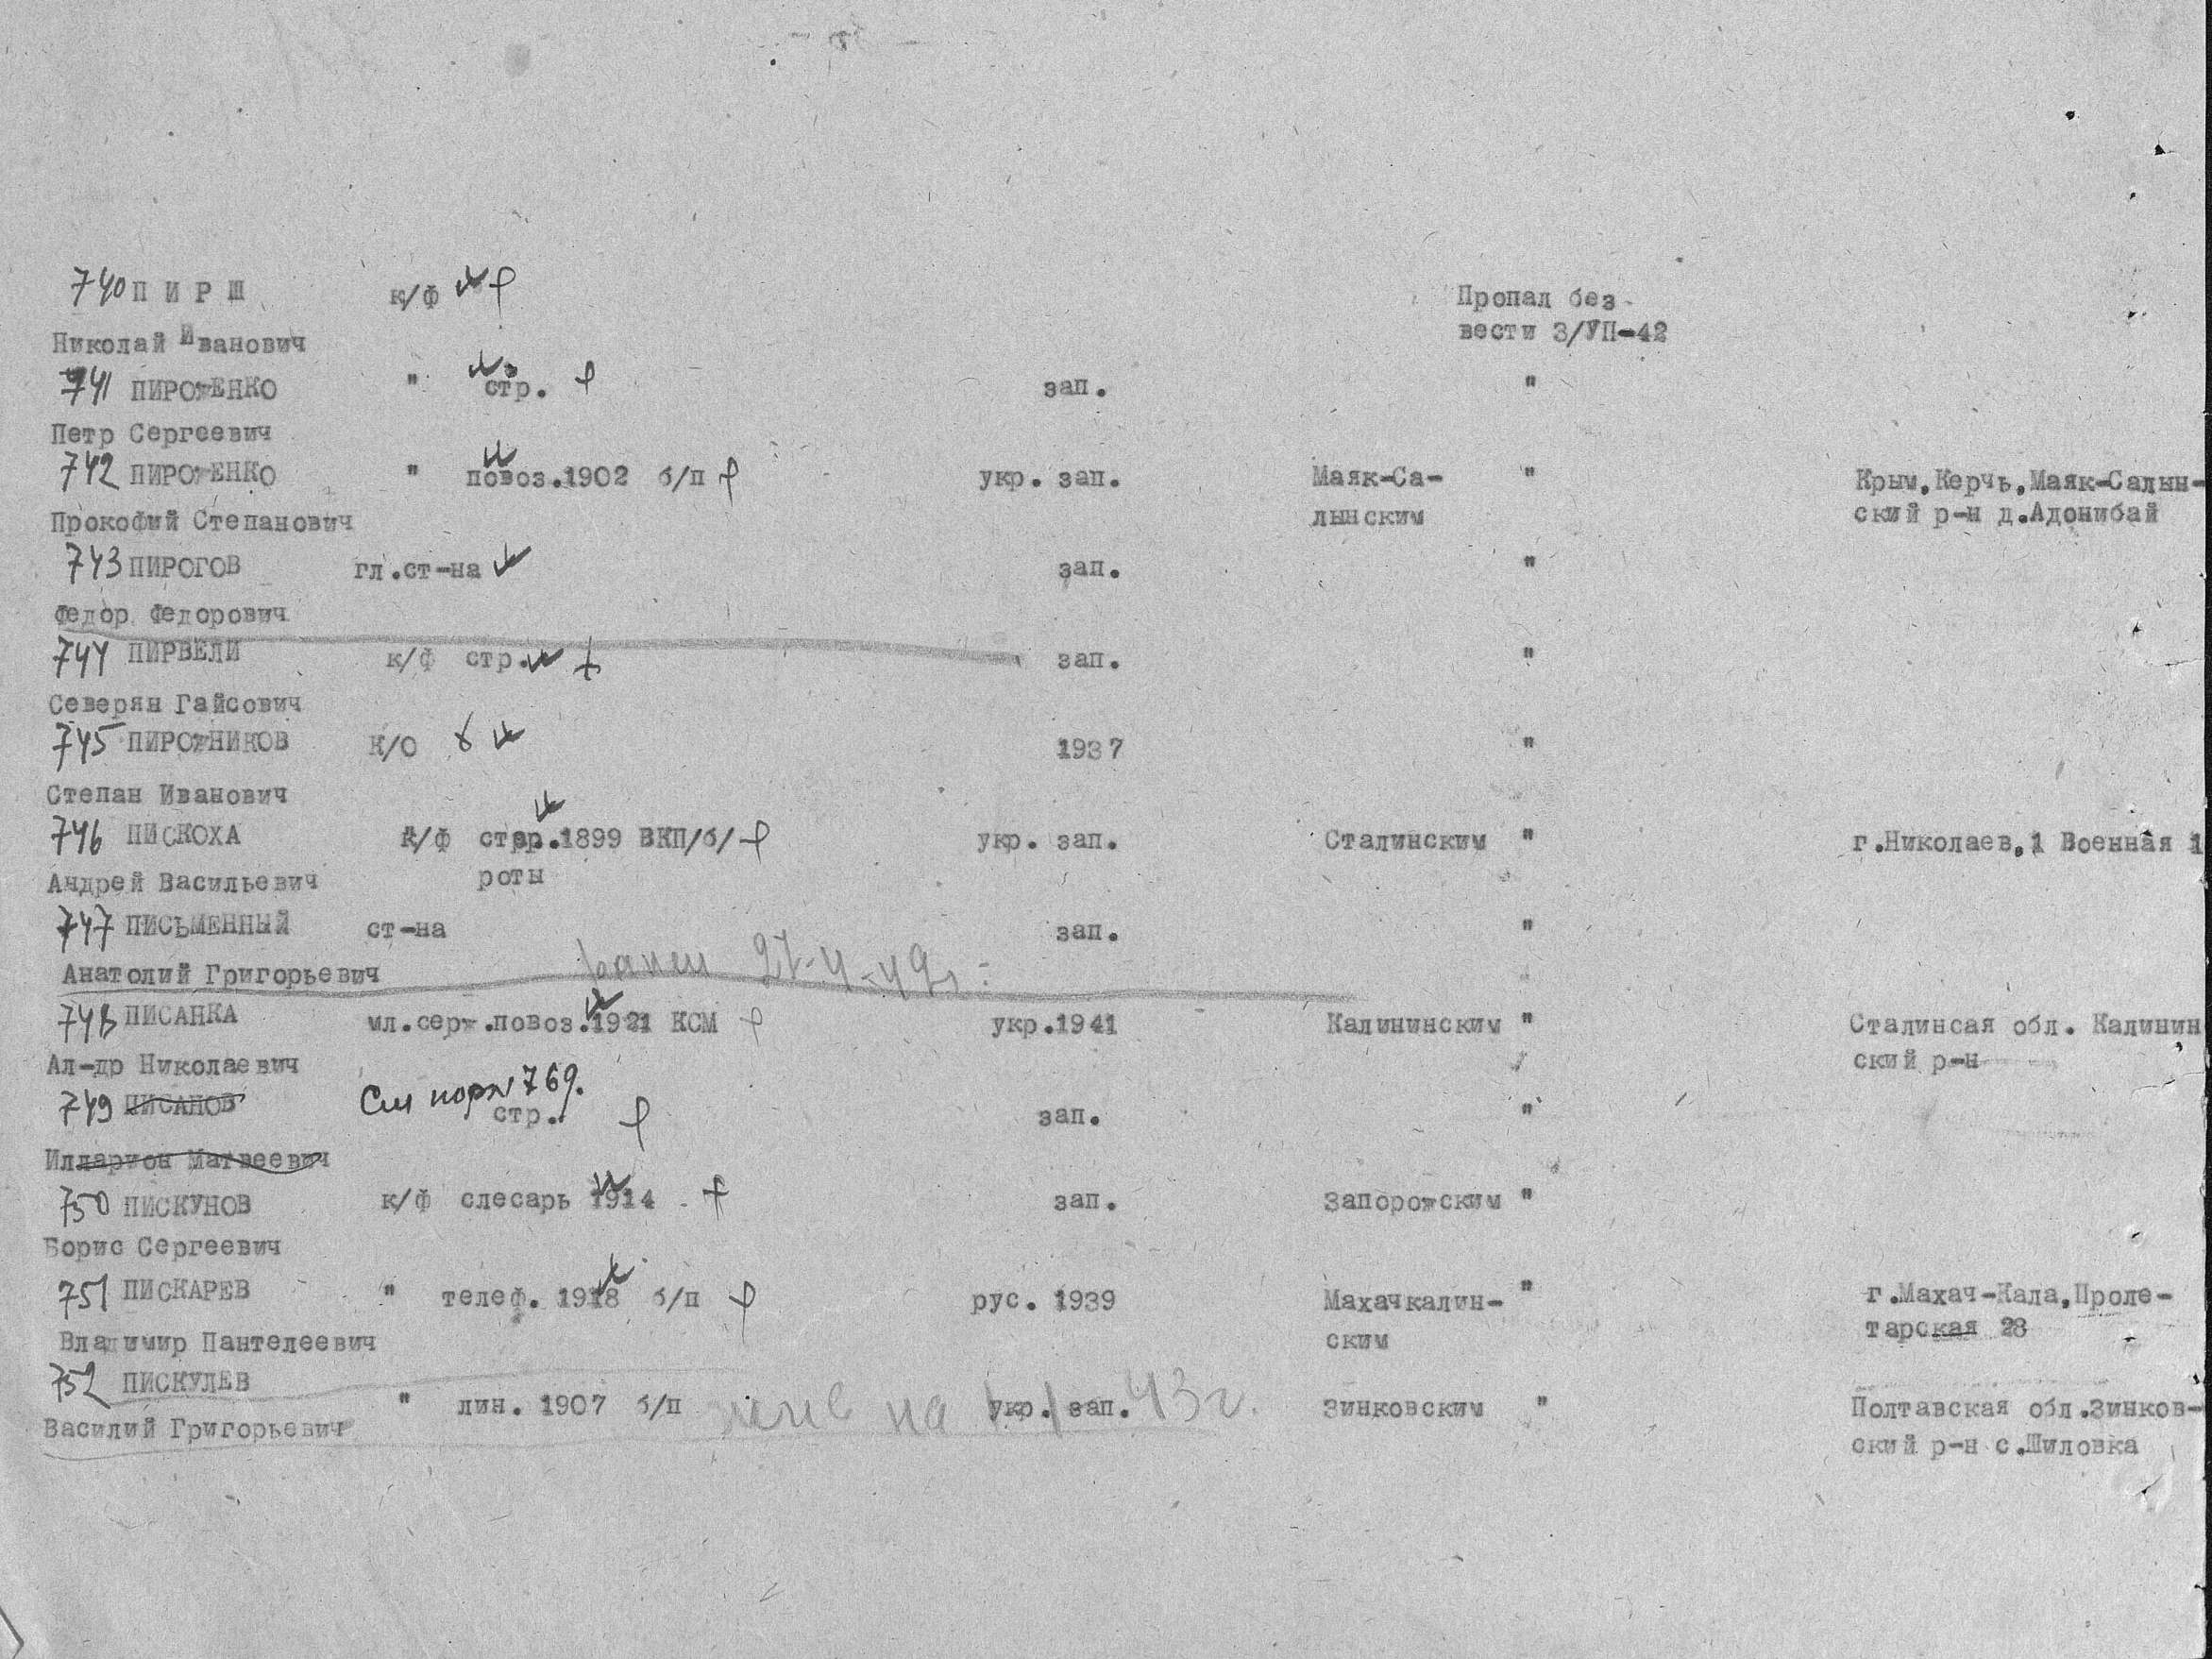 740 П И Р Ш к/ф Пропал без
Николай Иванович вести 3/УП-42
741 ПИРОЖЕНКО " стр. зап. "
Петр Сергеевич
742 ПИРОЖЕНКО " повоз.1902 б/п укр. зап. Маяк-Са- " Крым,Керчь,Маяк-Салын-
Прокофий Степанович лынским ский р-н д.Адонибай
743 ПИРОГОВ гл.ст-на зап. "
Федор Федорович
744 ПИРВЕЛИ к/ф стр. зап. "
Северян Гайсович
745 ПИРОЖНИКОВ К/О 1937 "
Степан Иванович
746 ПИСКОХА к/ф 1899 ВКП/б/ укр. зап. Сталинским " г.Николаев,1 Военная 1
Андрей Васильевич роты
747 ПИСЬМЕННЫЙ ст-на зап. "
Анатолий Григорьевич ранен
748 ПИСАНКА мл.серж.повоз.1921 КСМ укр.1941 Калининским " Сталинсая обл. Калинин
Ал-др Николаевич ский р-н
См пор№769.
749 ПИСАНОВ стр. зап. "
Илларион Матвеевич
750 ПИСКУНОВ к/ф слесарь 1914 зап. Запорожским "
Борис Сергеевич
751 ПИСКАРЕВ " телеф. 1918 б/п рус. 1939 Махачкалин- " г.Махач-Кала,Проле-
Владимир Пантелеевич ским тарская 28
752 ПИСКУЛЕВ
" лин. 1907 б/п на укр. зап. 43г. Зинковским " Полтавская обл.Зинков-
Василий Григорьевич ский р-н с.Шиловка